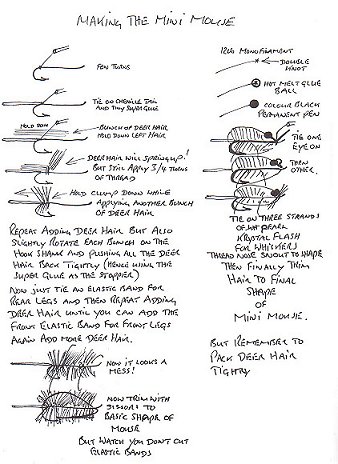 MAKING THE MINI MOUSE
FEW TURNS
TIE ON CHENILLE TAIL
AND TINY SUPER GLUE
HOLD DOWN
BUNCH OF DEER HAIR
HOLD DOWN LEFT HAIR
DEER HAIR WILL SPRING UP!
BUT STILL APPLY 3/4 TURNS
OF THREAD
HOLD CLUMP DOWN WHILE
APPLYING ANOTHER BUNCH
OF DEER HAIR
REPEAT ADDING DEER HAIR BUT ALSO
SLIGHTLY ROTATE EACH BUNCH ON THE
HOOK SHANK AND PUSHING ALL THE DEER
HAIR BACK TIGHTLY (HENCE USING THE
SUPER GLUE AS THE STOPPER)
NOW JUST TIE AN ELASTIC BAND FOR
REAR LEGS AND THEN REPEAT ADDING
DEER HAIR UNTIL YOU CAN ADD THE
FRONT ELASTIC BAND FOR FRONT LEGS
AGAIN ADD MORE DEER HAIR.
NOW IT LOOKS A
MESS!
NOW TRIM WITH
SISSORS TO
BASIC SHAPE OF
MOUSE
BUT WATCH YOU DON'T CUT
ELASTIC BANDS
MONOFILAMENT
DOUBLE
KNOT
HOT MELT GLUE
BALL
COLOUR BLACK
PERMANENT PEN
TIE ONE
EYE ON
THEN
OTHER.
TIE ON THREE STRANDS
OF PEARL
KRYSTAL FLASH
FOR WHISKERS
THREAD NOSE SNOUT TO SHAPE
THEN FINALLY TRIM
HAIR TO FINAL
SHAPE
OF
MINI MOUSE.
BUT REMEMBER TO
PACK DEER HAIR
TIGHTLY